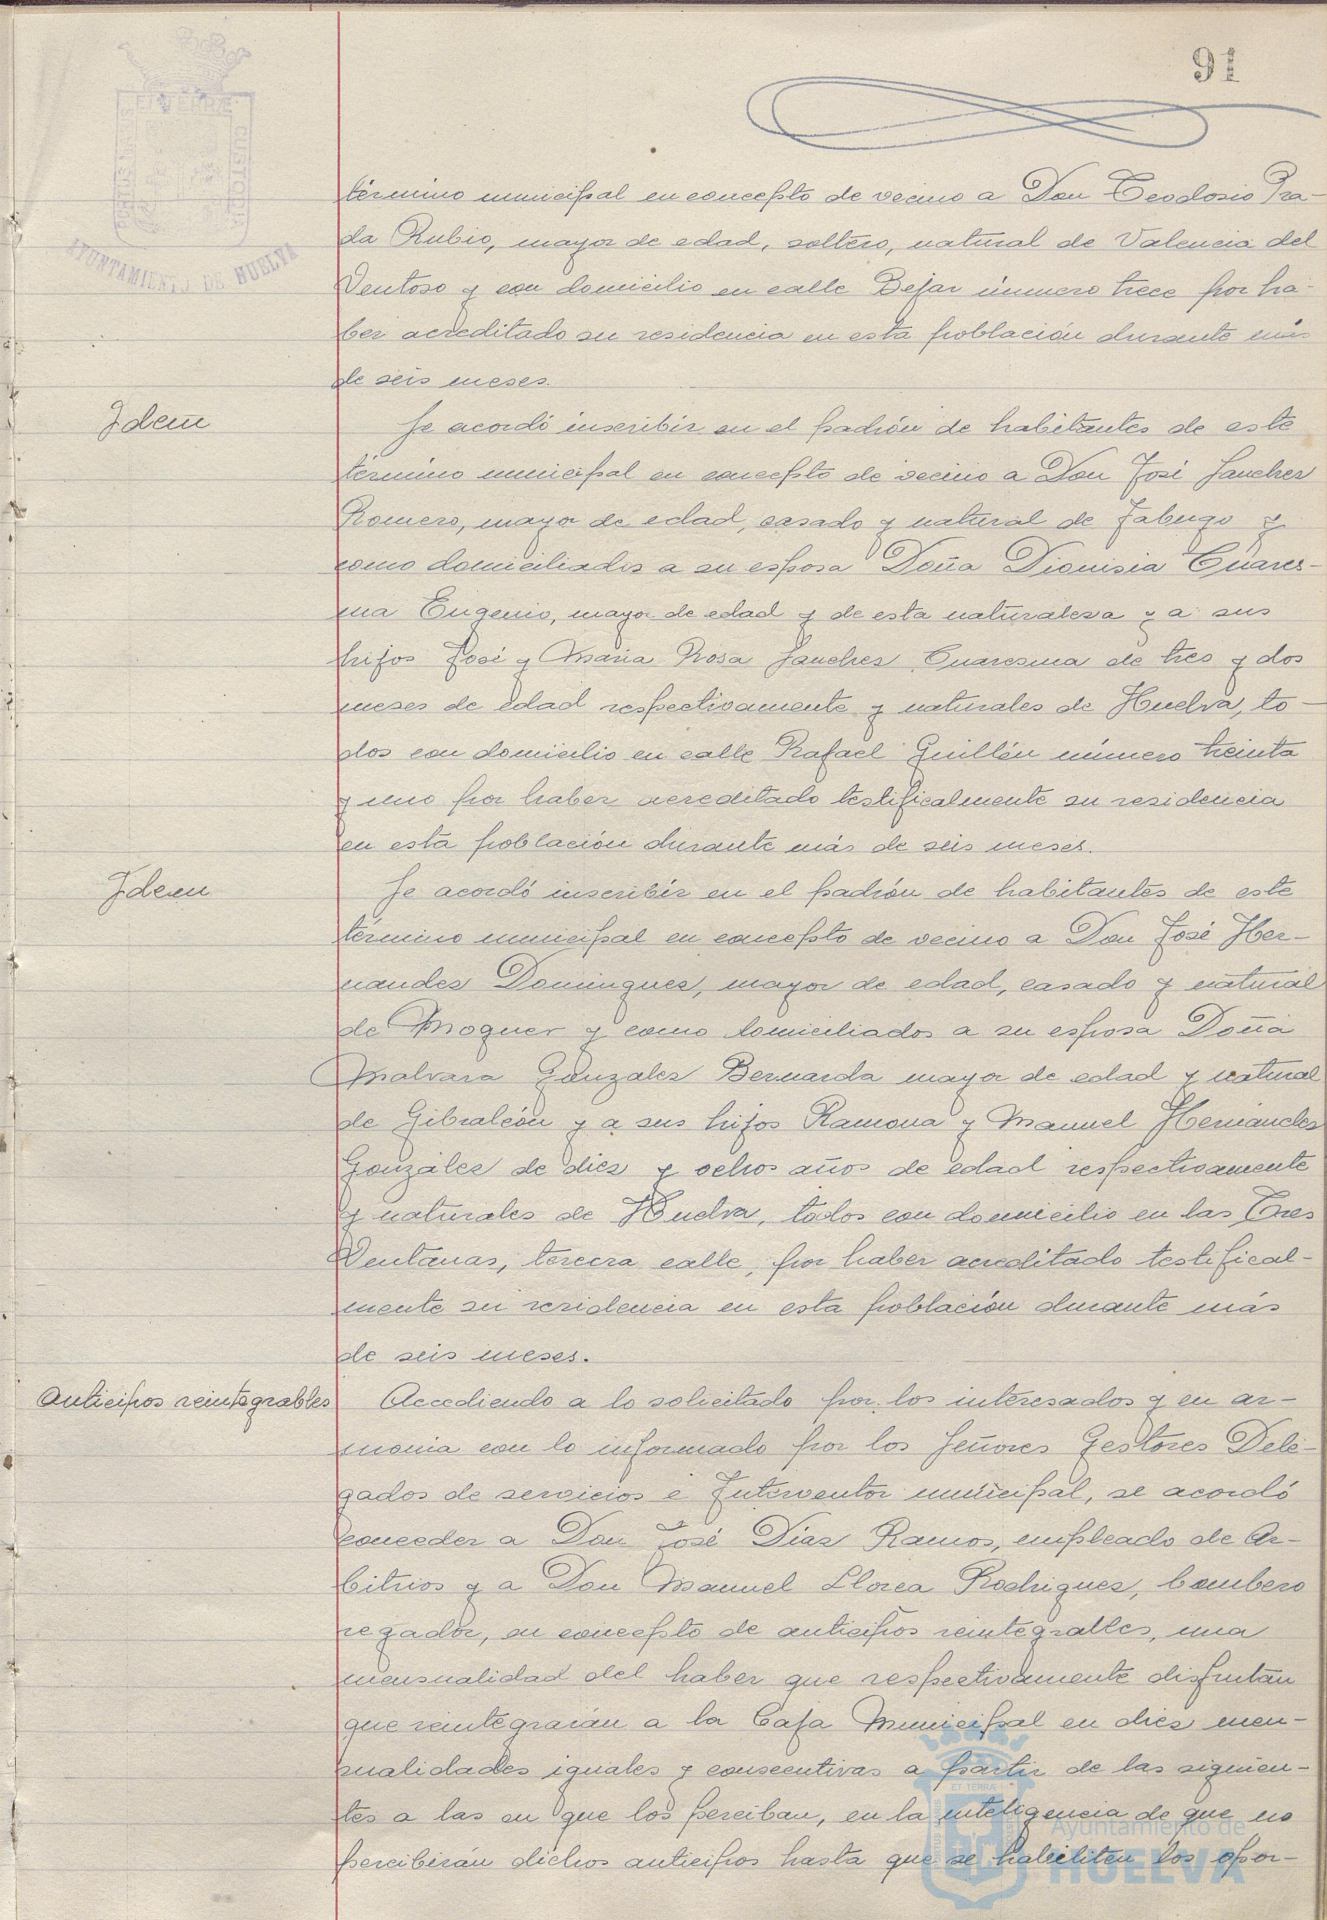 91
PORTUS MARIS ET TERRÆ CUSTODIA
AYUNTAMIENTO DE HUELVA
término municipal en concepto de vecino a Don Teodosio Pra-
da Rubio, mayor de edad, soltero, natural de Valencia del
Ventoso y con domicilio en calle Bejar número trece por ha-
ber acreditado su residencia en esta población durante más
de seis meses.
Idem
Se acordó inscribir en el padrón de habitantes de este
término municipal en concepto de vecino a Don José Sanchez
Romero, mayor de edad, casado y natural de Jabugo y
como domiciliados a su esposa Doña Dionisia Cuares-
ma Eugenio, mayor de edad y de esta naturaleza y a sus
hijos José y Maria Rosa Sanchez Cuaresma de tres y dos
meses de edad respectivamente y naturales de Huelva, to-
dos con domicilio en calle Rafael Guillén número treinta
y uno por haber acreditado testificalmente su residencia
en esta población durante más de seis meses.
Idem
Se acordó inscribir en el padrón de habitantes de este
término municipal en concepto de vecino a Don José Her-
nandez Dominguez, mayor de edad, casado y natural
de Moguer y como domiciliados a su esposa Doña
Malvara Gonzalez Bernarda mayor de edad y natural
de Gibraleón y a sus hijos Ramona y Manuel Hernandez
González de diez y ochos años de edad respectivamente
y naturales de Huelva, todos con domicilio en las Tres
Ventanas, tercera calle, por haber acreditado testifical-
mente su residencia en esta población durante más
de seis meses.
Anticipos reintegrables
Accediendo a lo solicitado por los interesados y en ar-
monia con lo informado por los Señores Gestores Dele-
gados de servicios e Interventor municipal, se acordó
conceder a Don José Díaz Ramos, empleado de Ar-
bitrios y a Don Manuel Llorca Rodriguez, bombero
regador, en concepto de anticipos reintegrables, una
mensualidad del haber que respectivamente disfrutan
que reintegrarán a la Caja Municipal en diez men-
sualidades iguales y consecutivas a partir de las siguien-
tes a las en que los perciban, en la inteligencia de que no
percibirán dichos anticipos hasta que se habiliten los opor-
Ayuntamiento de
HUELVA